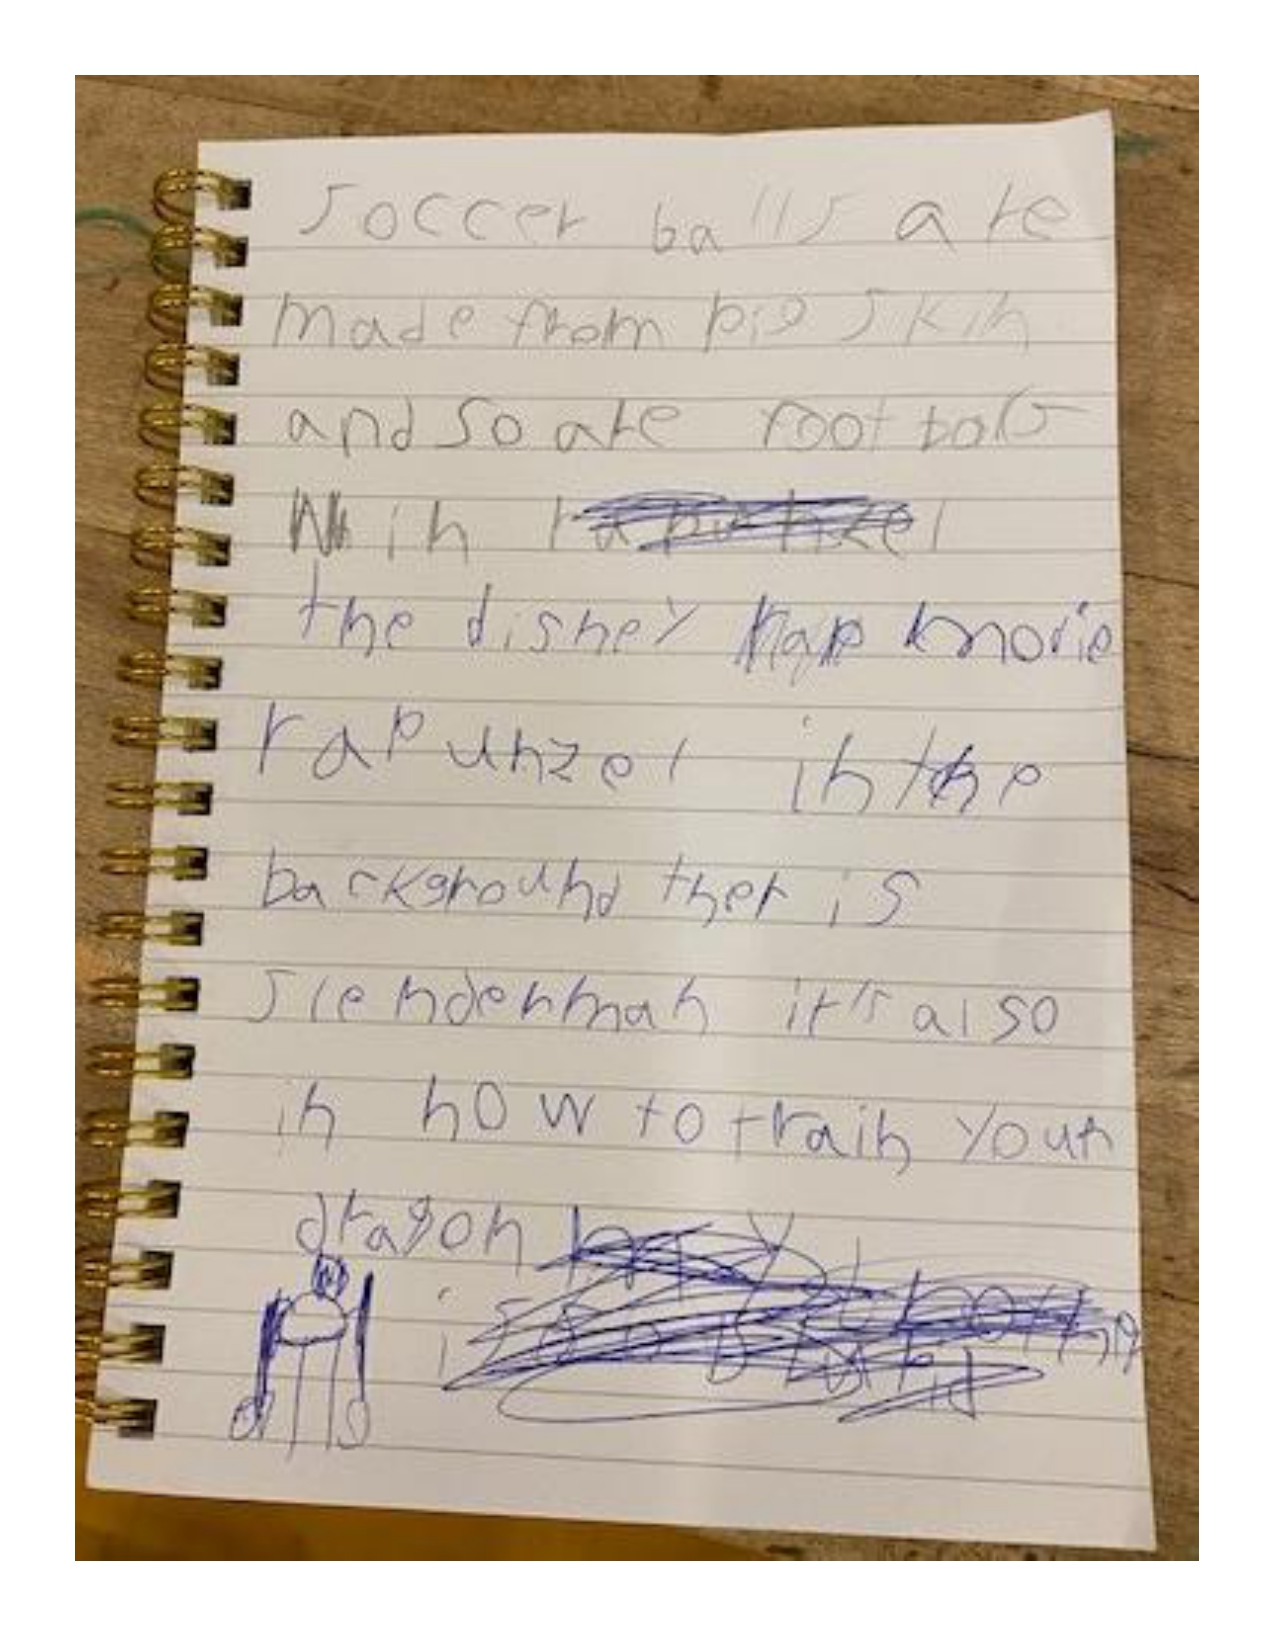 soccer balls are
made from pig skin
and so are foot balls
in rapunzel
the disney movie
rapunzel in the
background ther is
slendermah it's also
in how to train your
dragon